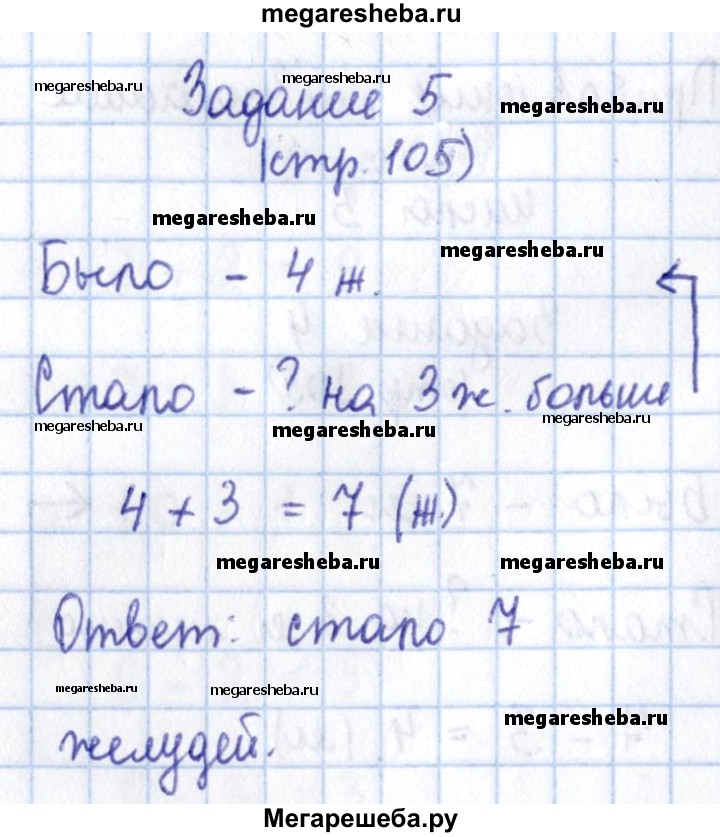 megaresheba.ru
megaresheba.ru megaresheba.ru
Задание 5 megaresheba.ru
(стр. 105)
megaresheba.ru
megaresheba.ru
Было - 4 ж.
Стало - ? на 3 ж. больше
megaresheba.ru megaresheba.ru megaresheba.ru
4 + 3 = 7 (ж.)
megaresheba.ru megaresheba.ru
Ответ: стало 7
megaresheba.ru megaresheba.ru
megaresheba.ru
желудей.
Мегарешеба.ру